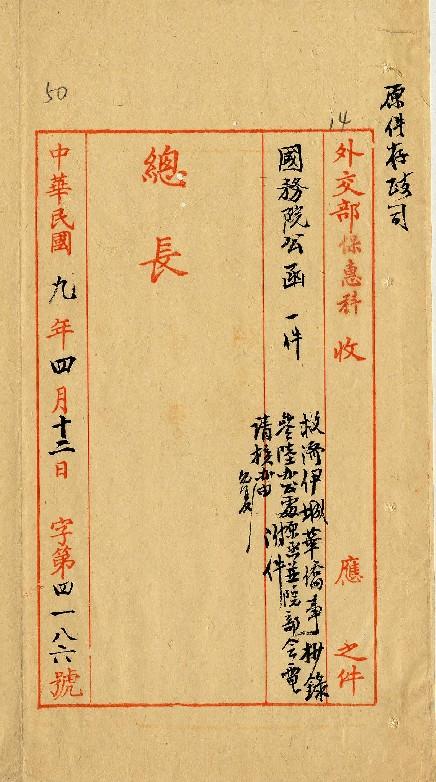 原件存政司
14
外交部保惠科收 應 之件
國務院公函一件
救濟伊城華僑事抄錄
參陸辦公處原函並院部會電
請核辦由 附件
總長
中華民國九年四月十二日 字第四一八六號
50